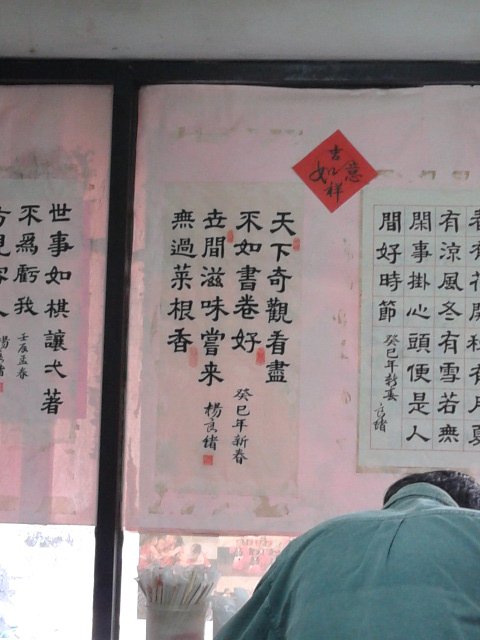 吉祥如意
有花開秋有月夏
有涼風冬有雪若無
閑事掛心頭便是人
間好時節
癸巳年新春
良緒
天下奇觀看盡
不如書卷好
世間滋味嘗来
無過菜根香
癸巳年新春
楊良緒
世事如棋讓弌著
不為虧我
壬辰孟春